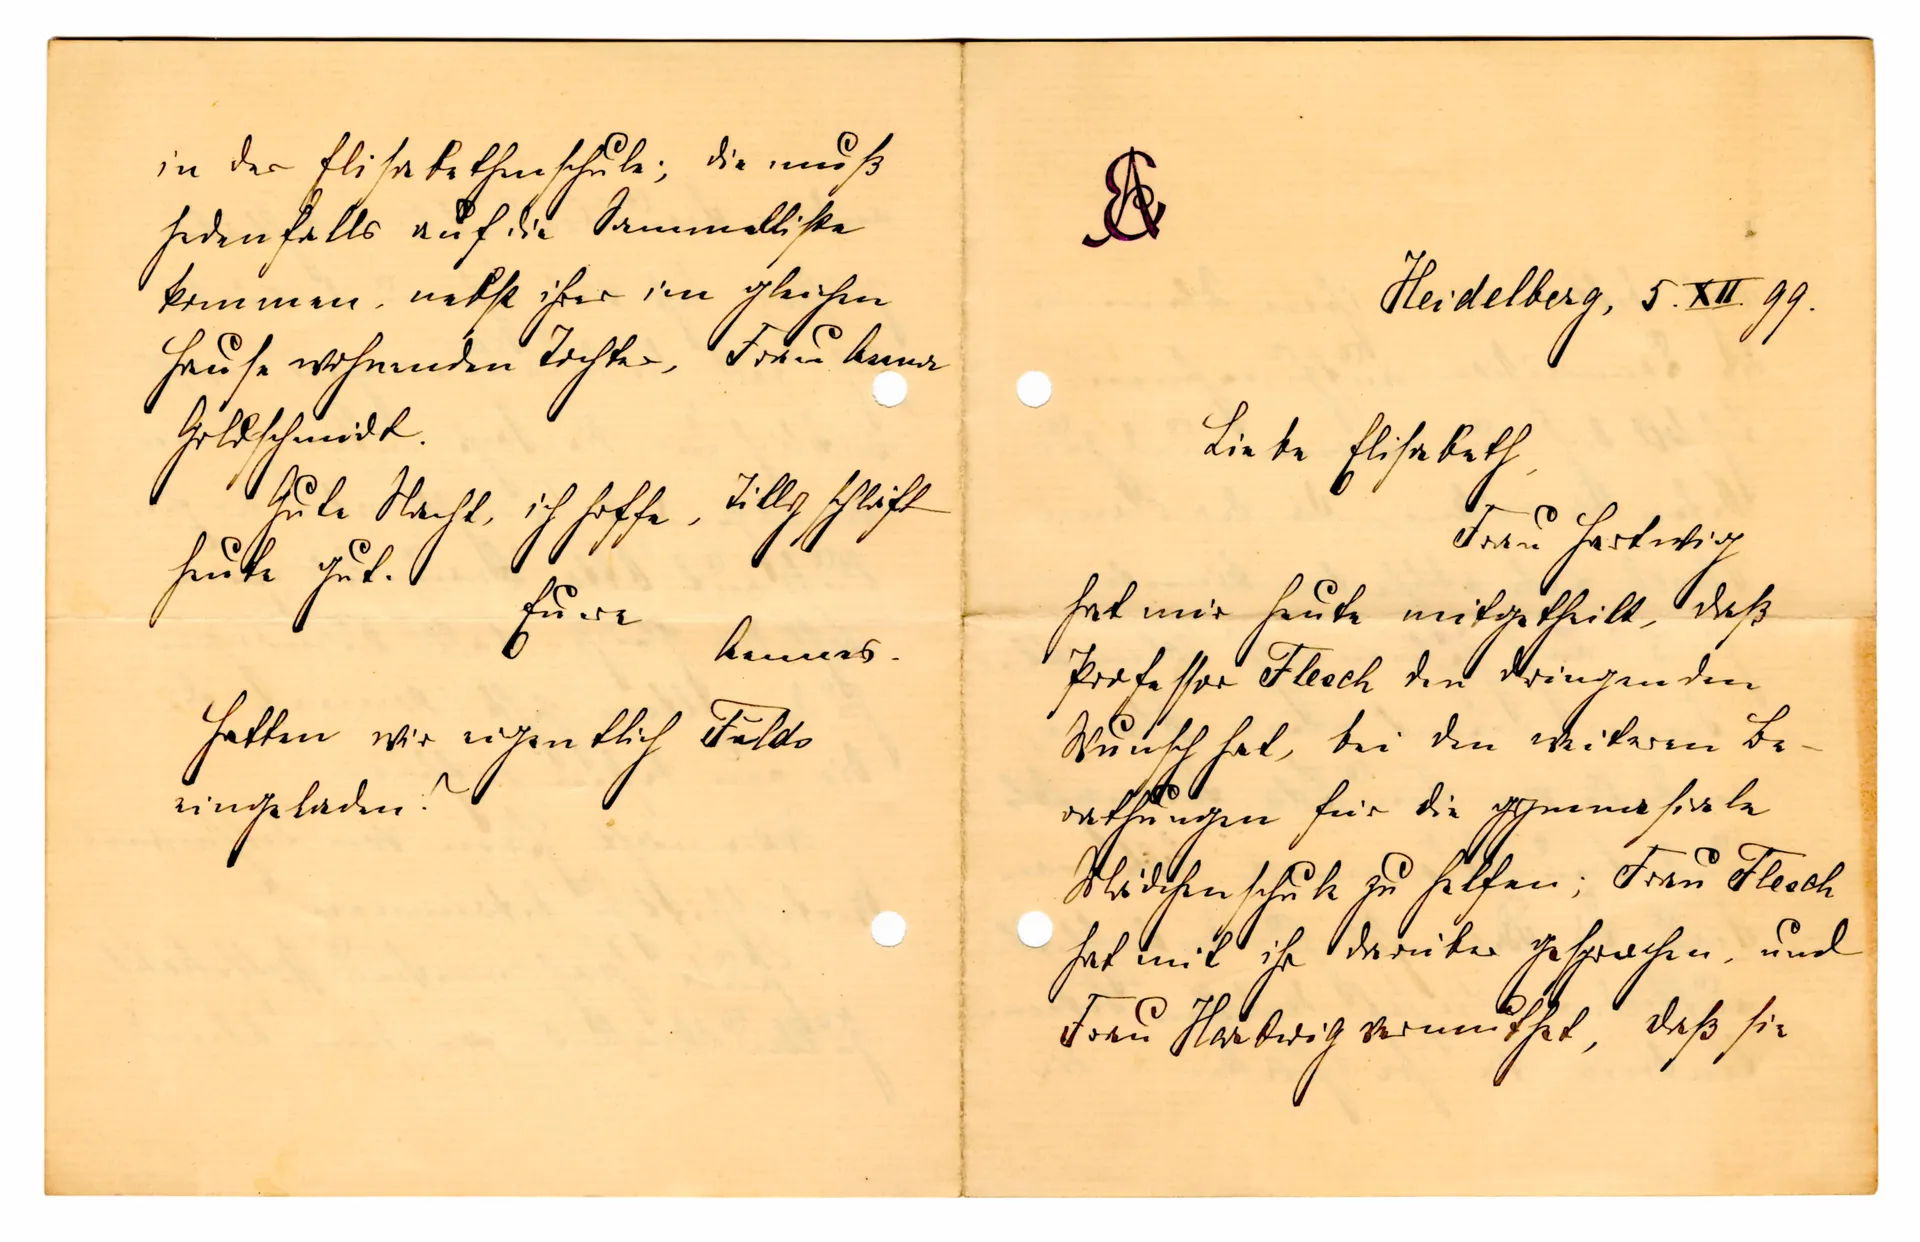 Heidelberg, 5. XII. 99.
Liebe Elisabeth,
Frau Hartwig
hat mir heute mitgetheilt, daß
Professor Flesch den dringenden
Wunsch hat, bei den weiteren Be-
rathungen für die gymnasiale
Mädchenschule zu helfen; Frau Flesch
hat mit ihr darüber gesprochen, und
Frau Hartwig vermuthet, daß sie
in der Elisabethenschule; die muß
jedenfalls auf die Sammelliste
kommen, nebst ihrer im gleichen
Hause wohnenden Tochter, Frau Anna
Goldschmidt.
Gute Nacht, ich hoffe, Tilly schläft
heute gut.
Eure
Hatten wir eigentlich Fulds
eingeladen?